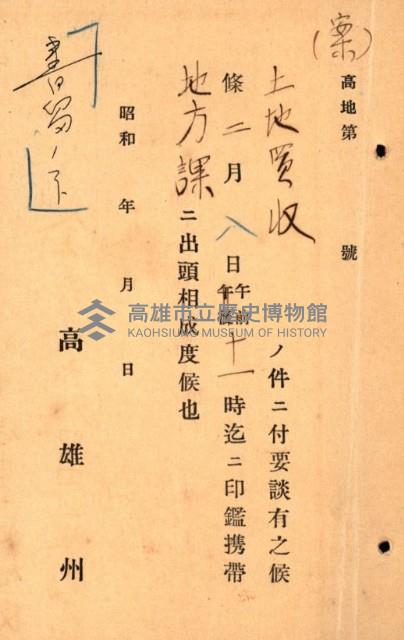 (案)
高地第　　　號
土地買収ノ件ニ付要談有之候
條二月八日午前十一時迄ニ印鑑携帶
午後
地方課ニ出頭相成度候也
昭和　　年　　月　　日
高雄州
書留ノ
高雄市立歷史博物館
KAOHSIUNG MUSEUM OF HISTORY